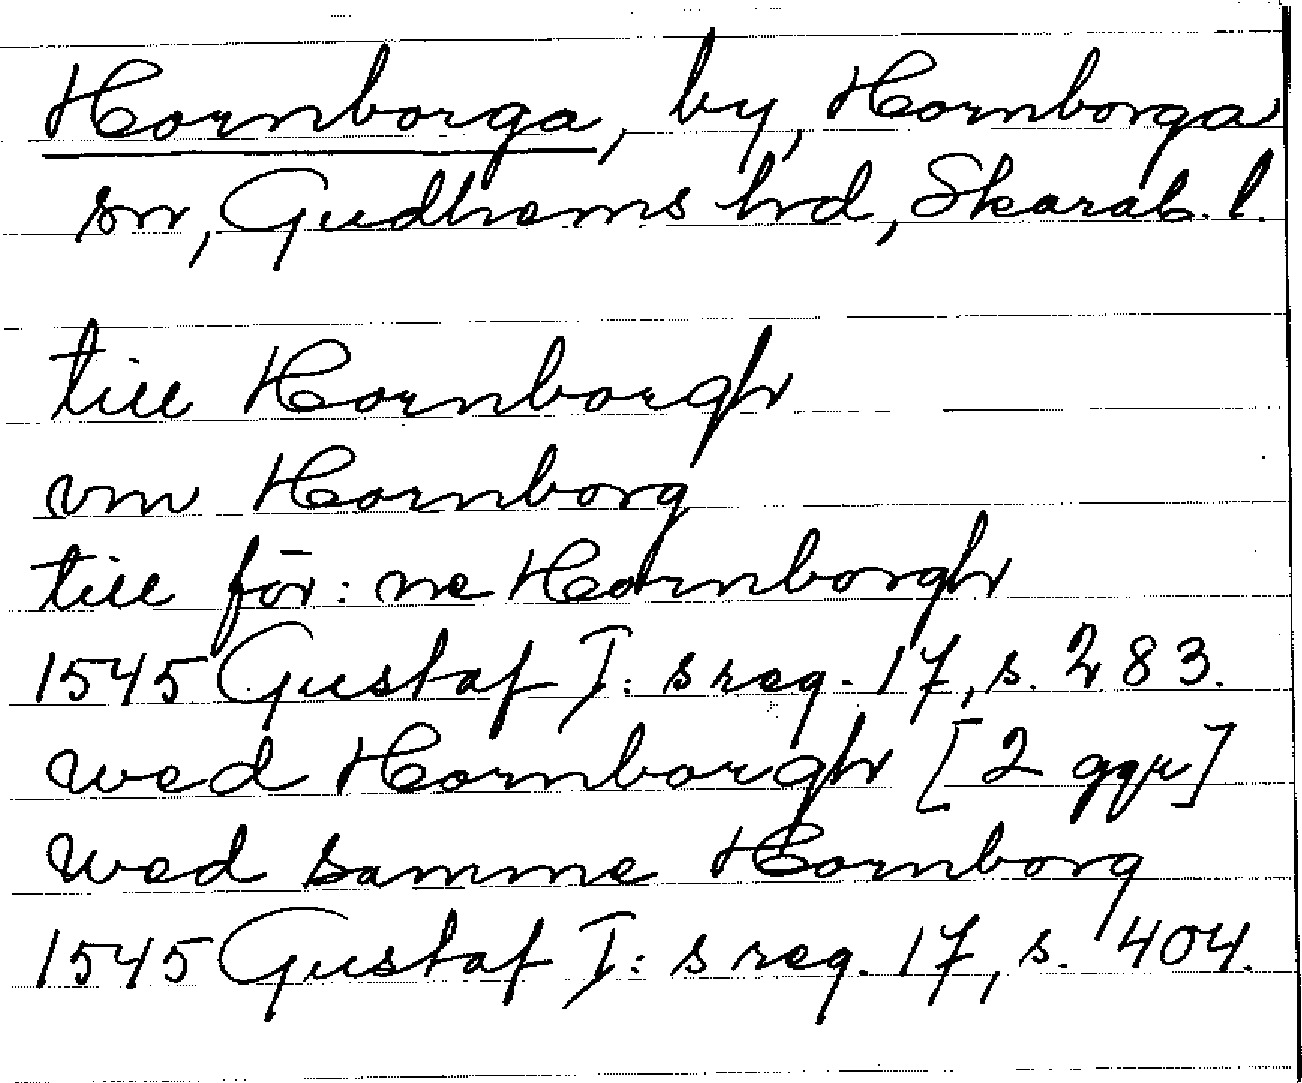 Hornborga, by, Hornborga
sn, Gudhems hd, Skarab. l.
till Hornborgh
vm Hornborg
till för: ne Hornborgh
1545 Gustaf I: s reg. 17, s. 283.
wed Hornborgh [2 ggr]
wed samme Hornborg
1545 Gustaf I: s reg. 17, s. 404.